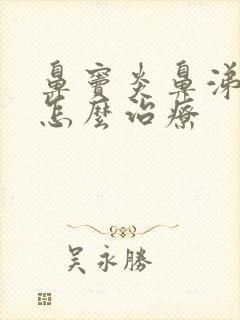 鼻竇炎鼻涕
怎麼治療
吳永勝